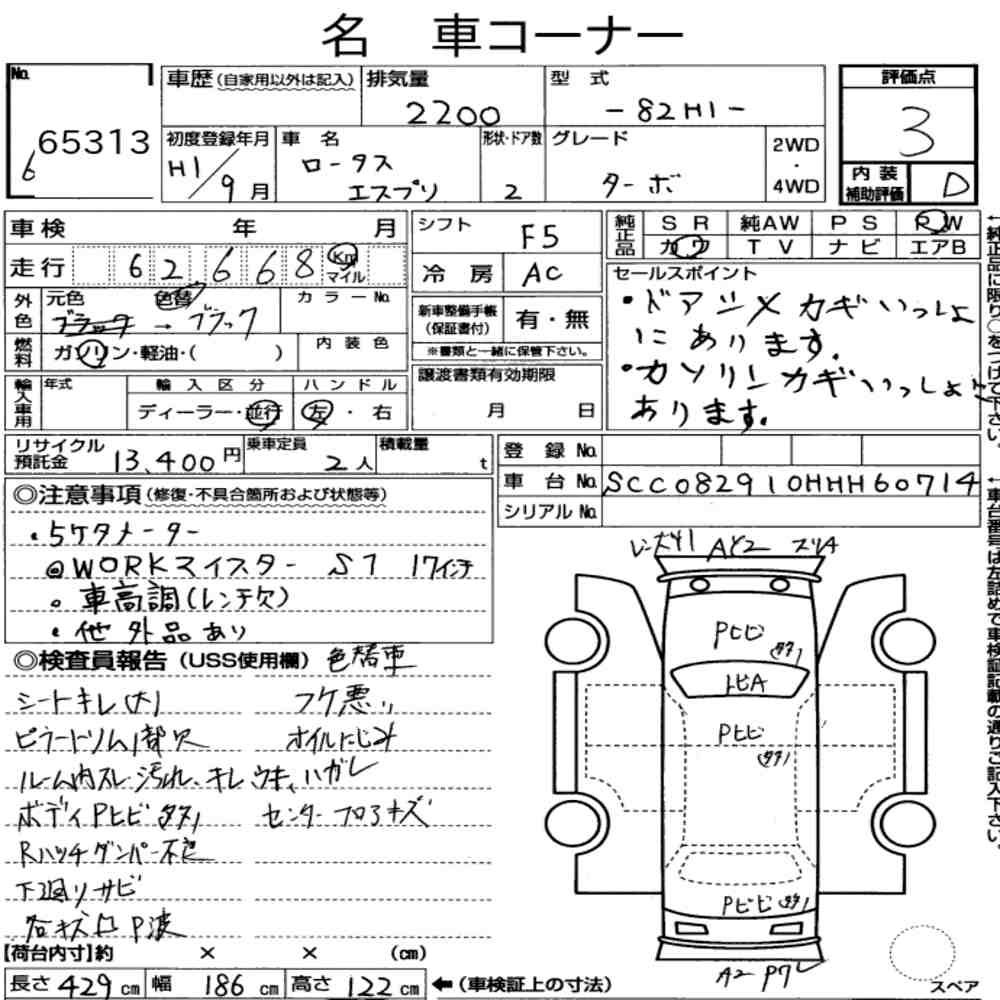 名 車コーナー
No. 65313
6
車歴(自家用以外は記入) 排気量 2200 型式 -82H1- 評価点 3
初度登録年月 H1/9月 車名 ロータス エスプリ 形状・ドア数 2 グレード ターボ 2WD・4WD 内装補助評価 D
車検 年 月 シフト F5 純正品 SR 純AW PS PW
カワ TV ナビ エアB
走行 62,668 Km マイル 冷房 AC
セールスポイント
・ドアシメカギいっしょ
にあります。
・ガソリンカギいっしょに
あります。
外色 元色 ブラック → 色替 ブラック カラーNo.
新車整備手帳(保証書付) 有・無
※書類と一緒に保管下さい。
燃料 ガソリン・軽油・( ) 内装色
譲渡書類有効期限
月 日
輸入車用 年式 輸入区分 ハンドル
ディーラー・並行 左・右
リサイクル預託金 13,400円 乗車定員 2人 積載量 t
登録No.
車台No. SCC082910HHH60714
シリアルNo.
◎注意事項(修復・不具合箇所および状態等)
・5ケタメーター
◎WORKマイスター S1 17インチ
。車高調(レンチ欠)
・他外品あり
◎検査員報告(USS使用欄) 色替車
シートキレ(大) フケ悪い
ピラートリム1部欠 オイルにじみ
ルーム内スレ汚れ、キレ、ウキ、ハガレ
ボディPヒビ タタ1 センターフロアキズ
Rハッチダンパー不良
下廻りサビ
各キズ凹P波
【荷台内寸】約 × × (cm)
長さ429cm 幅186cm 高さ122cm ←(車検証上の寸法)
A42
Pヒビ
タタ1
トビA
Pヒビ
タタ1
Pヒビ タタ1
A2 P
スペア
←純正品に限り○をつけて下さい。
←車台番号は左詰めで車検証記載の通りご記入下さい。